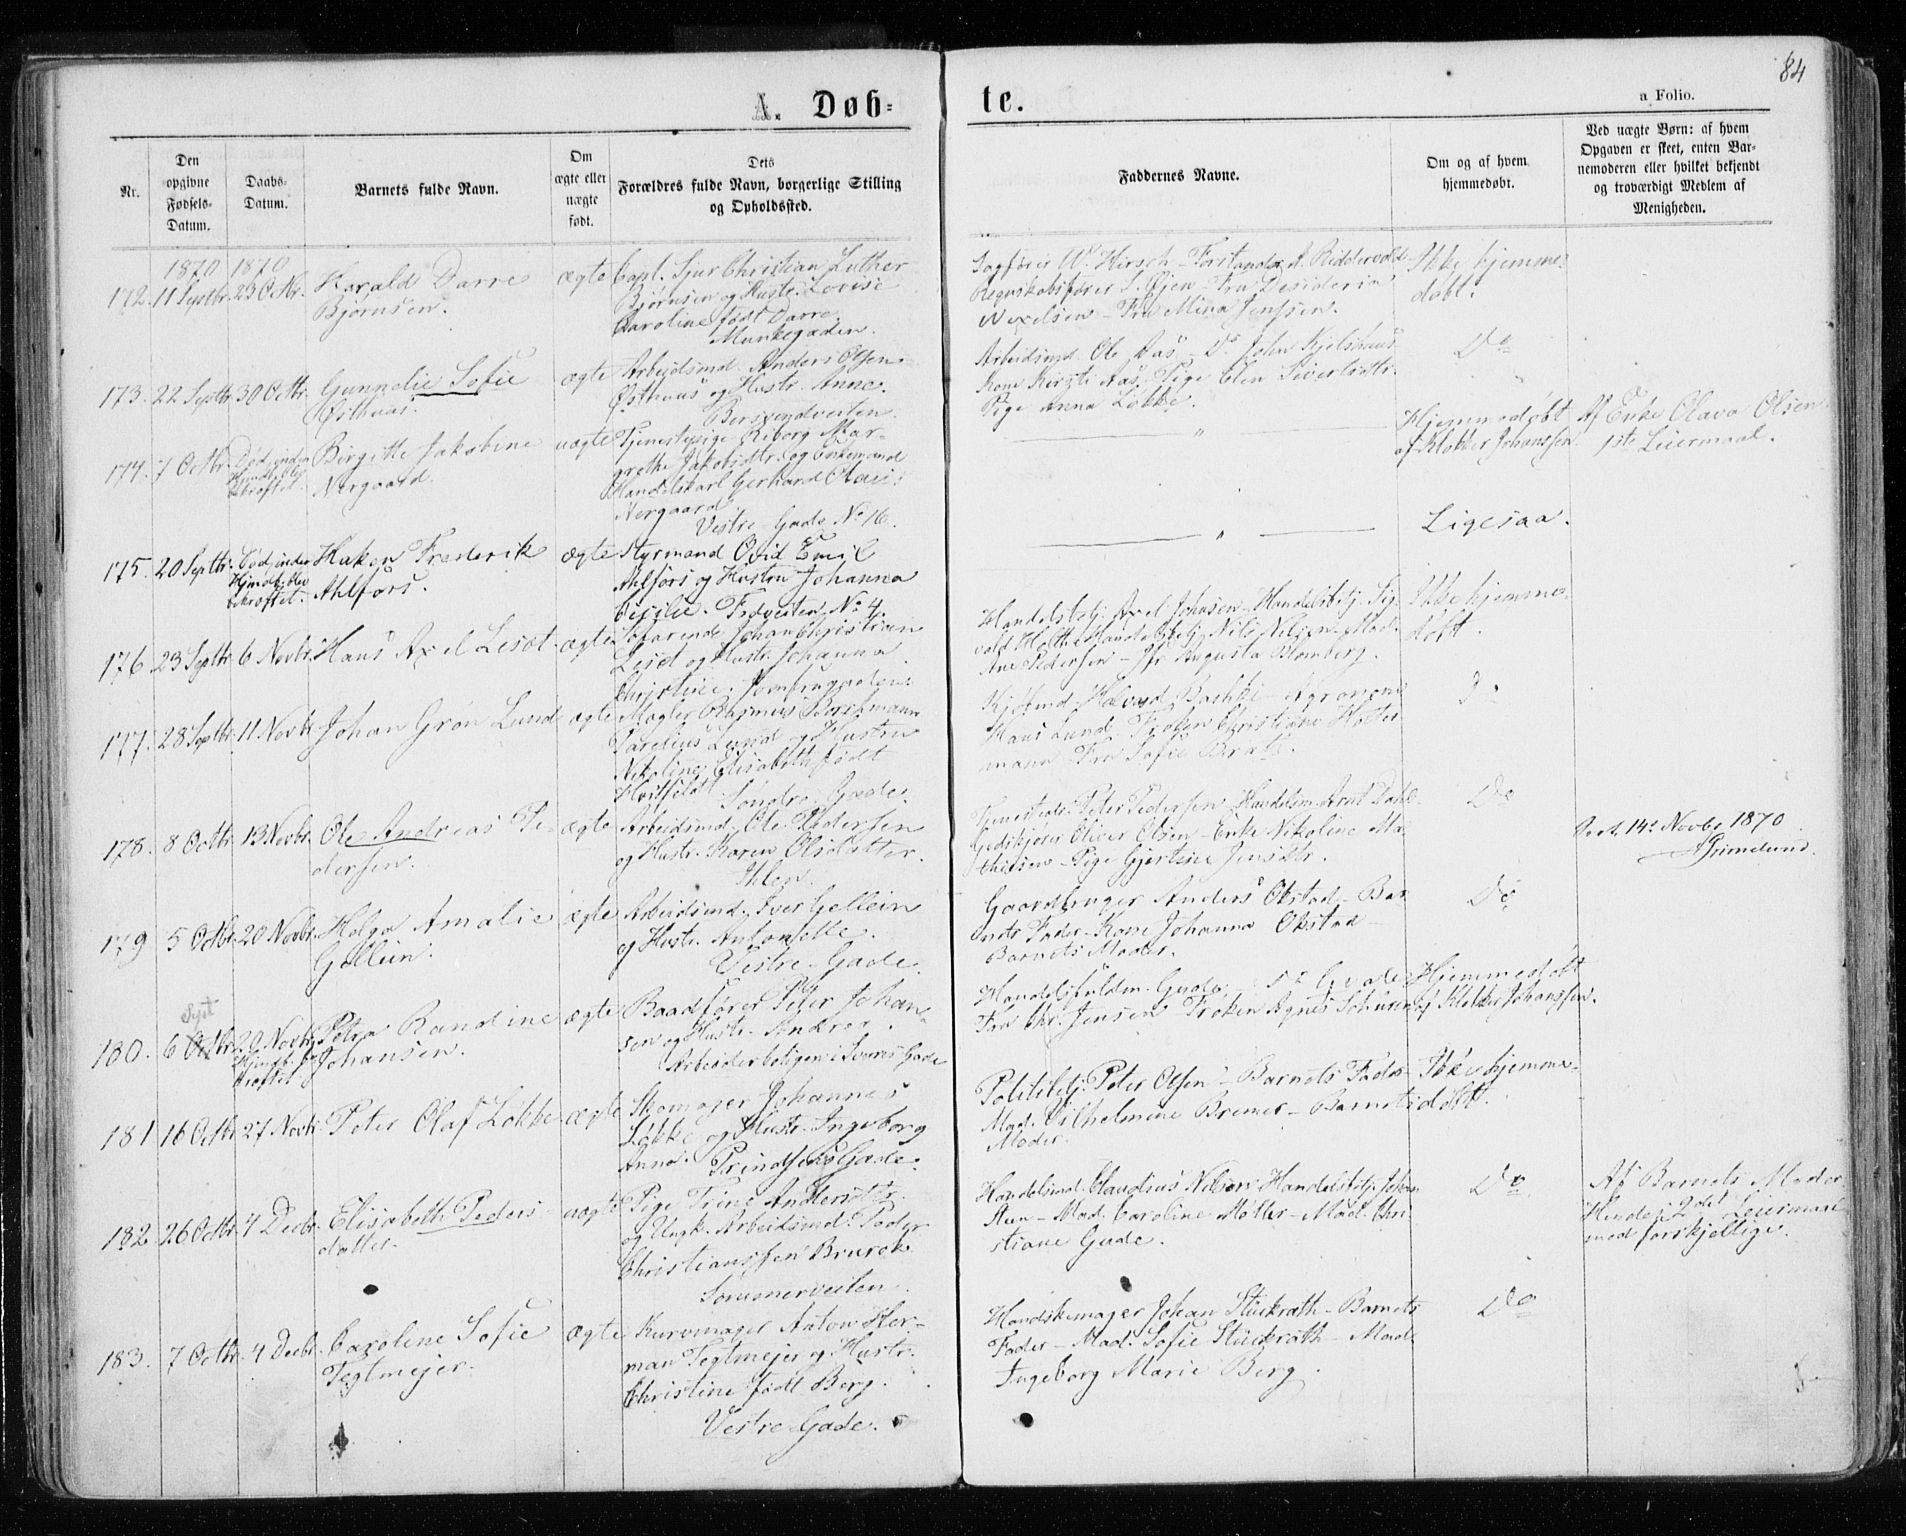 84
A. Døb=
te.
a Folio.
Nr.
Den opgivne Fødsels-Datum.
Daabs-Datum.
Barnets fulde Navn.
Om ægte eller uægte født.
Dets Forældres fulde Navn, borgerlige Stilling og Opholdssted.
Faddernes Navne.
Om og af hvem hjemmedøbt.
Ved uægte Børn: af hvem Opgaven er skeet, enten Barnemoderen eller hvilket bekjendt og troværdigt Medlem af Menigheden.
1870 1870
172. 11 Septbr. 23 Octbr. Harald Darre ægte Capt. Sjur Christian Luther
Bjørnsen. Bjørnsen og Hustr. Lovise
Caroline født Darre.
Munkegaden.
Sagfører W. Hirsch - Forstander A. Riddervold
Regnskabsfører S. Øjen - Fru Desideria
Wexelsen - Fru Mina Jenssen.
Ikke hjemme-
døbt.
173. 22 Septbr. 30 Octbr. Gunnelie Sofie ægte Arbeidsmd. Anders Olsen
Østhuus. Østhuus og Hustr. Anne.
Arbeidsmd. Ole Aas - Do John Kjelshuus
Kone Kirsti Aas - Pige Elen Sivertsdtr.
Pige Anna Løkke.
Do
174. 7 Octbr. Birgitte Jakobine uægte Tjenestepige Kiborg Mar-
Nergaard. grethe Jakobsdtr. og Enkemand
Handelskarl Gerhard Olai
Nergaard
Vestre Gade No 16.
Hjemmedøbt
af Klokker Johanssen.
Af Enke Olava Olsen
1ste Leiermaal.
175. 20 Septbr. Død, inden Haken Frederik ægte Styrmand Ovid Emil
Hjmdb. blev Ahlfors. Ahlfors og Hustru Johanna
bekræftet. Cecilie. No 4.
Ligesaa.
176 23 Septbr. 6 Novbr. Hans Axel Leset. ægte Søfarende Johan Christian
Leset og Hustr. Johanna
Christine. Jomfrugaden.
Handelsbtj. Axel Johnsen - Handelsbetj. Sig-
vold Holte - Handelsbetj. Nils Nilsen - Mad.
Ane Pedersen - Jfr. Augusta Blomberg.
Ikke hjemme-
døbt.
177. 28 Septbr. 11 Novbr. Johan Grøn Lund ægte Mægler Rasmus
Parelius Lund og Hustru
Nikoline Elisabeth født
Søndre Gade.
Kjøbmd. Halvard Bachke - Agronom
Hans Lund - Frøken Christiane
Fru Sofie
178. 8 Octbr. 13 Novbr. Ole Andreas Pe- ægte Arbeidsmd. Ole Pedersen
dersen. og Hustr. Karen Olsdatter.
Ihlen.
Tjenestedr. Peter Pedersen - Handelsm. Arnt Dahl
Oliver Olsen - Enke Nikoline Ma-
thiesen - Pige Gjertine Jensdtr.
Do
14de Novbr 1870
Grimelund.
179 5 Octbr. 20 Novbr. Helga Amalie ægte Arbeidsmd. Iver Gellein
Gellein. og Hustr. Antonette.
Vestre Gade.
Gaardbruger Anders Okstad - Bar-
nets Fader - Kone Johanna Okstad
Barnets Moder.
Do
Sept
180. 6 Octbr. 20 Novbr. Petra Randine ægte Baadfører Peter Johan-
Johansen. sen og Hustr. Andrea.
Arbeiderboligen i Sverres Gade
Handelsfuldm. Gude
Fru Chr. Jensen Frøken Agnes
Hjemmedøbt
af Klokker Johanssen.
181 16 Octbr. 27 Novbr. Peter Olaf Løkke ægte Skomager Johannes
Løkke og Hustr. Ingeborg
Anna. Prindsens Gade.
Politibetj. Peter Olsen - Barnets Fader
Mad. Vilhelmine Bremer - Barnets
Moder.
Ikke hjemme-
døbt.
182. 26 Octbr. 4 Decbr. Elisabeth Peders- uægte Pige Trine Andersdtr.
datter. og Ungk. Arbeidsmd. Peder
Christianssen Brurok
Handelsmd. Claudius Nilsen - Handelsbetj. Johan
Steen - Mad. Caroline Møller - Mad. Chri-
stiane Gude.
Do
Af Barnets Moder
Hendes 2det Leiermaal
med forskjellige.
183. 7 Octbr. 4 Decbr. Caroline Sofie ægte Kurvmager Anton Her-
Tegtmejer. man Tegtmejer og Hustr.
Christine født Berg.
Vestre Gade.
Handskemager Johan Stückrath - Barnets
Fader - Mad. Sofie Stückrath - Mad.
Ingeborg Marie Berg.
Do